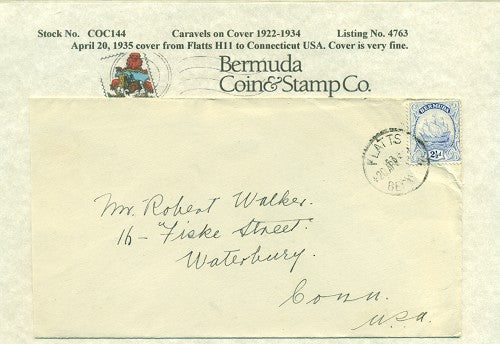 Stock No. COC144 Caravels on Cover 1922-1934 Listing No. 4763
April 20, 1935 cover from Flatts H11 to Connecticut USA. Cover is very fine.
Bermuda
Coin & Stamp Co.
BERMUDA
2½d
FLATTS
Mr. Robert Walker.
16 - "Fiske Street"
Waterbury.
Conn.
U.S.A.